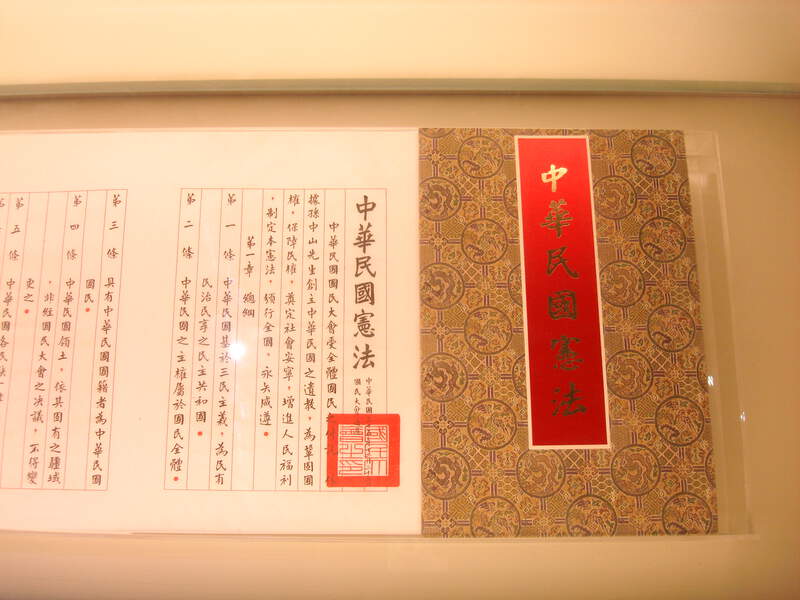 中華民國憲法
中華民國憲法
中華民國
國民大會
中華民國國民大會受全體國民
據孫中山先生創立中華民國之遺教，為鞏固國
權，保障民權，奠定社會安寧，增進人民福利
，制定本憲法，頒行全國，永矢咸遵。
第一章　總綱
第一條　中華民國基於三民主義，為民有
民治民享之民主共和國。
第二條　中華民國之主權屬於國民全體。
第三條　具有中華民國國籍者為中華民國
國民。
第四條　中華民國領土，依其固有之疆域
，非經國民大會之決議，不得變
更之。
第五條　中華民國各民族